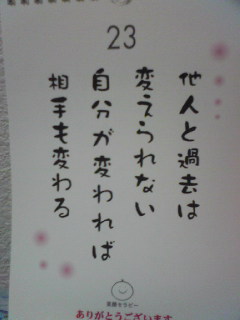 23
他人と過去は
変えられない
自分が変われば
相手も変わる
笑顔セラピー
ありがとうございます